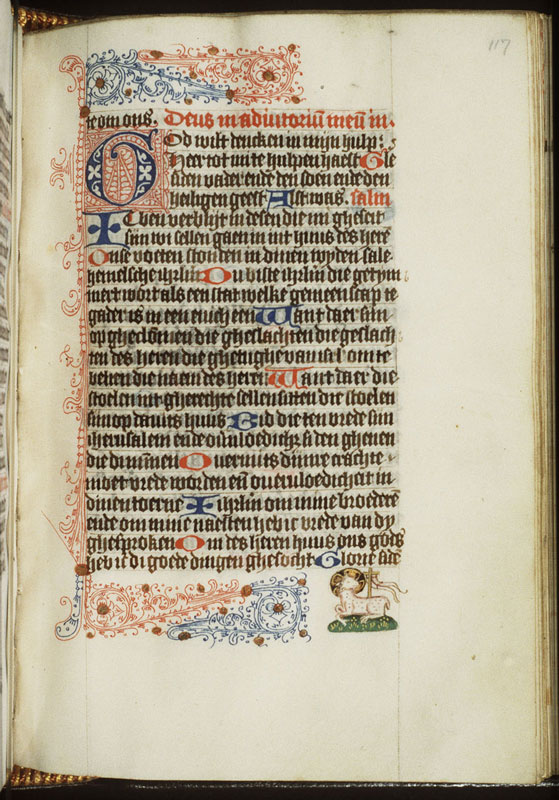 117
te om ons. Deus in adiutoriū meū in.
God wilt dencken in mijn hulp.
Heer tot mi te hulpen haest Gle
si den vader ende den soen ende den
heiligen geest Alst was. salm
Ic ben verblijt in desen die mi gheseit
sijn wi sellen gaen in int huus des herē
Onse voeten stonden in dinen wyden sale
hemelsche ihrlm Du biste ihrlm die getym
mert wort als een stat welke gemeenscap te
gader is in een enich een Want daer sijn
op gheclōmen die gheslachten die geslach
ten des heren die ghetughe van isrl om te
belien die naem des heren Want daer die
stoelen int gherechte sellen sitten die stoelen
sijn op dauits huus Bid die ten vrede sijn
iherusalem ende ouervloedich si den ghenen
die di minnen Ouermits dinre crachte
moet vrede worden eñ oueruloedicheit in
dinen toerne Ihrlm om mine broederē
ende om mine naesten heb ic vrede van dy
ghesproken Om des heren huus ons gods
heb ic di goede dingen ghesocht Glorie